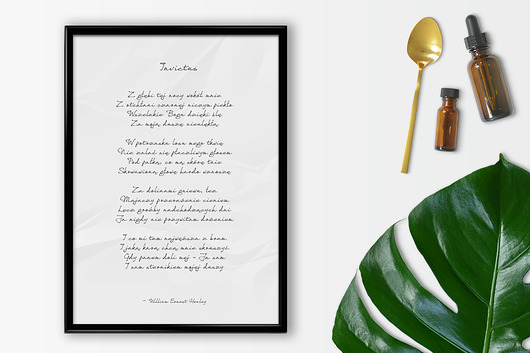 Invictus
Z głębi tej nocy wokół mnie
Z otchłani czarnej niczym piekło
Wszelakie Boga dzięki ślę
Za moją duszę niezlękłą
W potrzasku losu mego tkwię
Nie załkał się płaczliwym głosem
Pod pałką, co mą skórę tnie
Skrwawioną głowę hardo wznoszę
Za dolinami gniewu, łez
Majaczy przerażenie cieniem
Lecz groźby nadchodzących dni
Ja nigdy nie przywitam drżeniem
I co mi tam
I jaką
Gdy panem doli mej - Ja sam
I sam sternikiem mojej duszy
~ William Ernest Henley